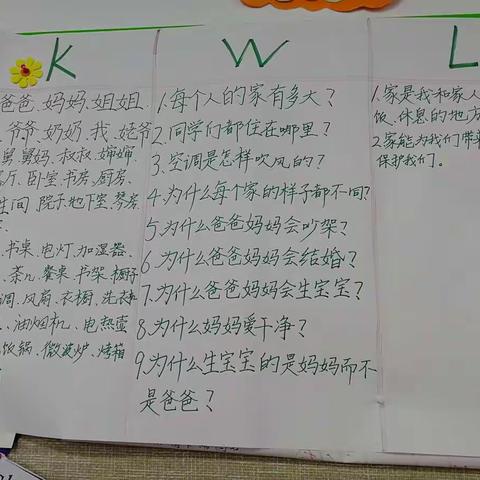 K
爸爸、妈妈、姐姐
爷爷、奶奶、我、姥爷
舅妈、叔叔、婶婶
厅、卧室、书房、厨房、
生间、院子、地下室、琴房
书桌、电灯、加湿器、
茶几、餐桌、书架、橱子
调、风扇、衣橱、洗衣机
、油烟机、电热壶
饭锅、微波炉、烤箱
W
1.每个人的家有多大？
2.同学们都住在哪里？
3.空调是怎样吹风的？
4.为什么每个家的样子都不同？
5.为什么爸爸妈妈会吵架？
6.为什么爸爸妈妈会结婚？
7.为什么爸爸妈妈会生宝宝？
8.为什么妈妈爱干净？
9.为什么生宝宝的是妈妈而不
是爸爸？
L
1.家是我和家人
饭、休息的地方
2.家能为我们带来
保护我们。